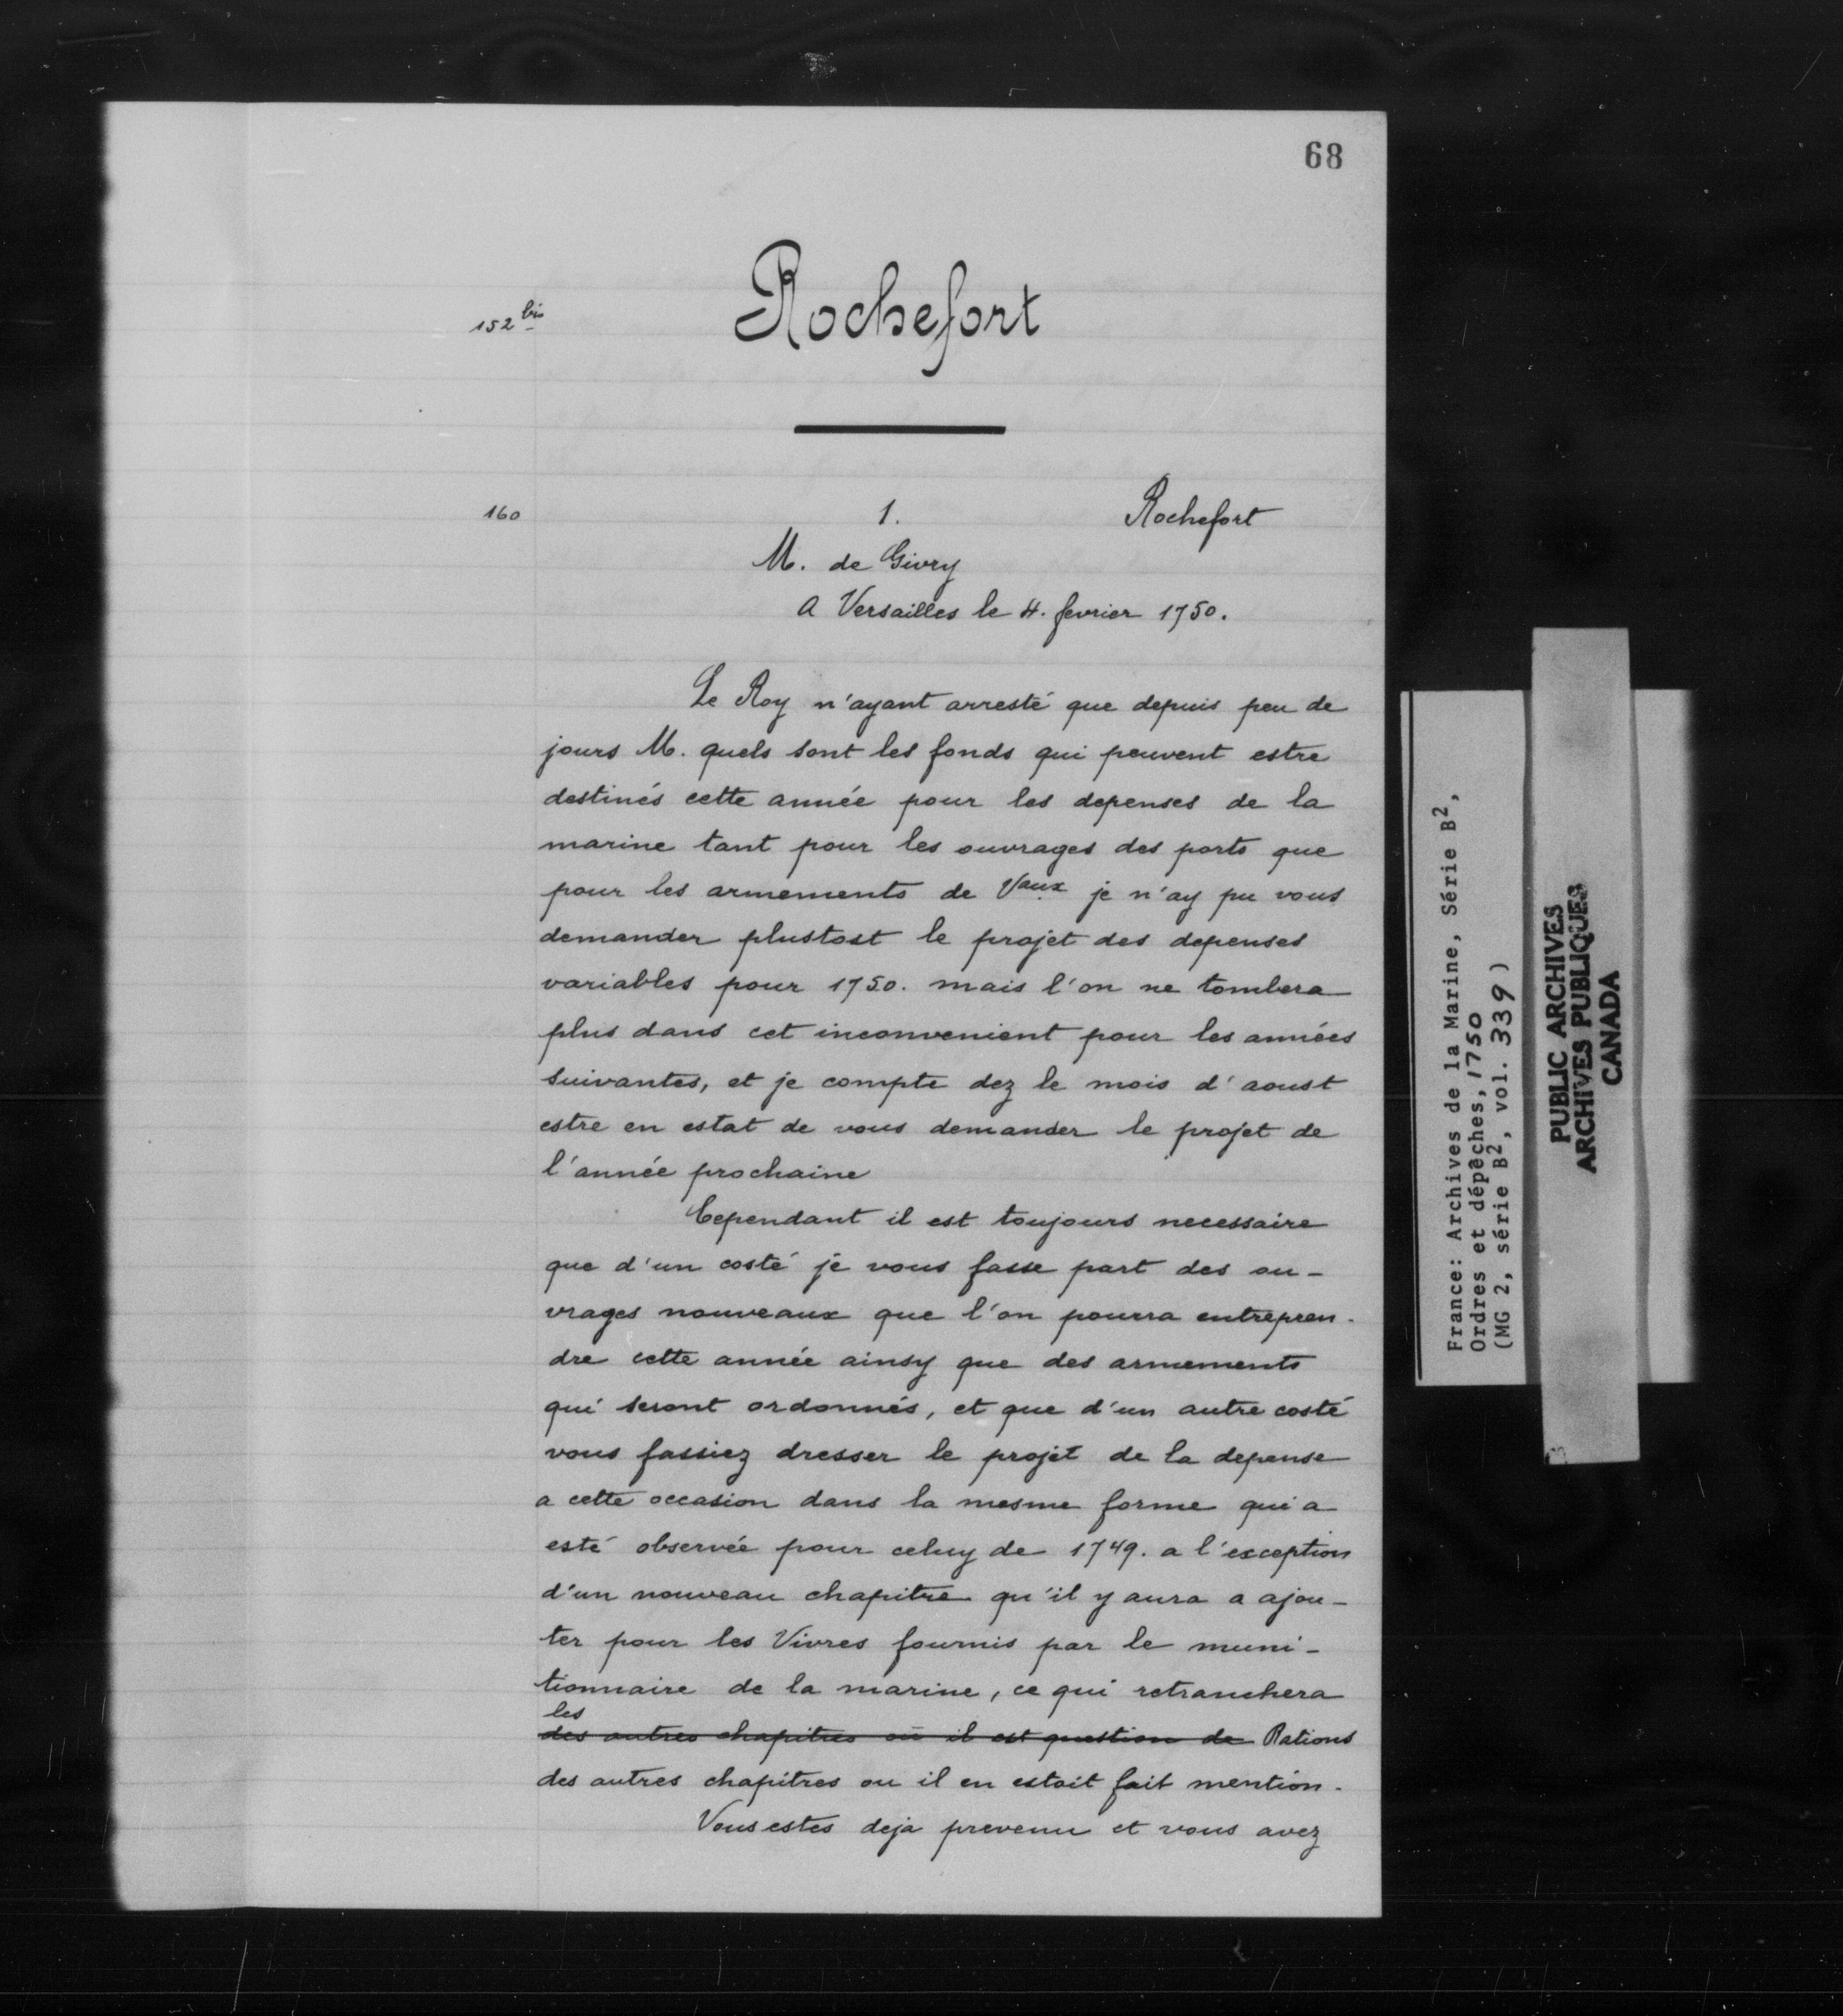 68
152 bis
Rochefort
160
1.
Rochefort
M. de Givry
A Versailles le 4. fevrier 1750.
Le Roy n'ayant arresté que depuis peu de
jours M. quels sont les fonds qui peuvent estre
destinés cette année pour les depenses de la
marine tant pour les ouvrages des ports que
pour les armements de Vaux je n'ay pu vous
demander plustost le projet des depenses
variables pour 1750. mais l'on ne tombera
plus dans cet inconvenient pour les années
suivantes, et je compte dez le mois d'aoust
estre en estat de vous demander le projet de
l'année prochaine
Cependant il est toujours necessaire
que d'un costé je vous fasse part des ou-
vrages nouveaux que l'on pourra entrepren-
dre cette année ainsy que des armements
qui seront ordonnés, et que d'un autre costé
vous fassiez dresser le projet de la depense
a cette occasion dans la mesme forme qui a
esté observée pour celuy de 1749. a l'exception
d'un nouveau chapitre qu'il y aura a ajou-
ter pour les Vivres fournis par le muni-
tionnaire de la marine, ce qui retranchera
les
des autres chapitres où il est question de Rations
des autres chapitres ou il en estoit fait mention.
Vous estes deja prevenu et vous avez
France: Archives de la Marine, Série B2,
Ordres et dépêches, 1750
(MG 2, série B2, vol. 339)
PUBLIC ARCHIVES
ARCHIVES PUBLIQUES
CANADA